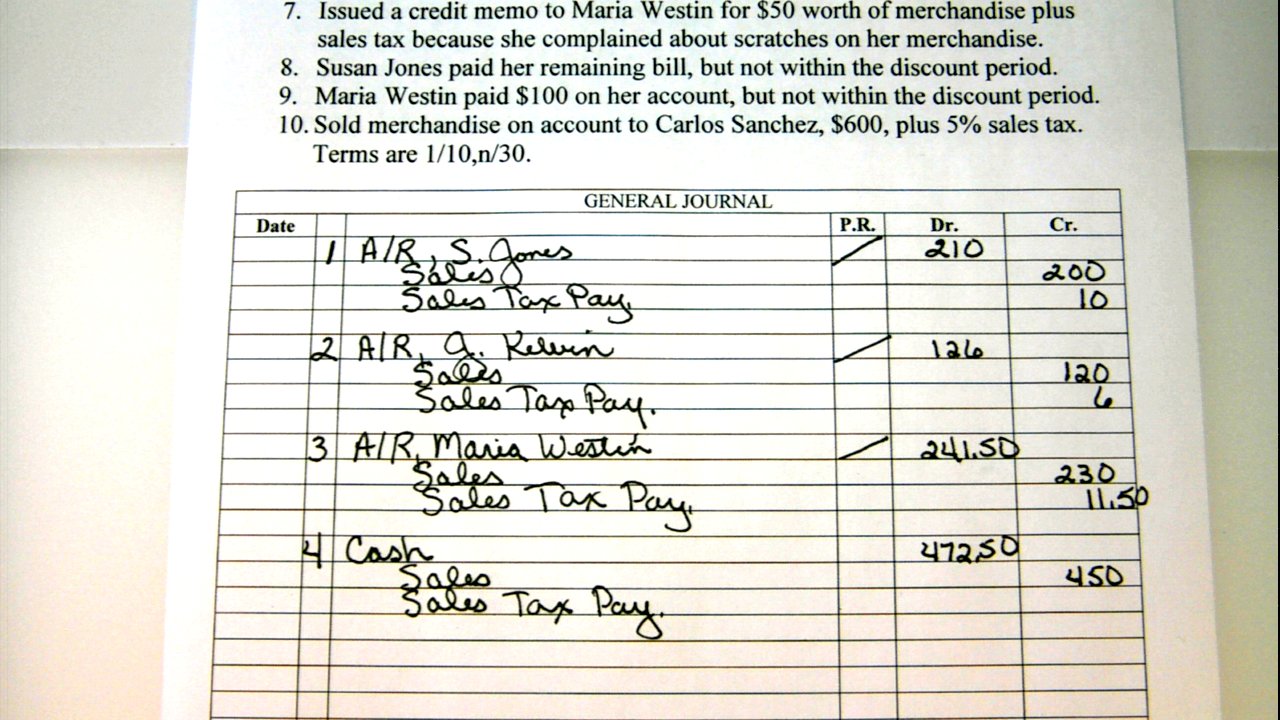 7. Issued a credit memo to Maria Westin for $50 worth of merchandise plus
sales tax because she complained about scratches on her merchandise.
8. Susan Jones paid her remaining bill, but not within the discount period.
9. Maria Westin paid $100 on her account, but not within the discount period.
10. Sold merchandise on account to Carlos Sanchez, $600, plus 5% sales tax.
Terms are 1/10,n/30.
GENERAL JOURNAL
Date P.R. Dr. Cr.
1 A/R, S. Jones 210
Sales 200
Sales Tax Pay. 10
2 A/R, J. Kelvin 126
Sales 120
Sales Tax Pay. 6
3 A/R, Maria Westin 241.50
Sales 230
Sales Tax Pay. 11.50
4 Cash 472.50
Sales 450
Sales Tax Pay.